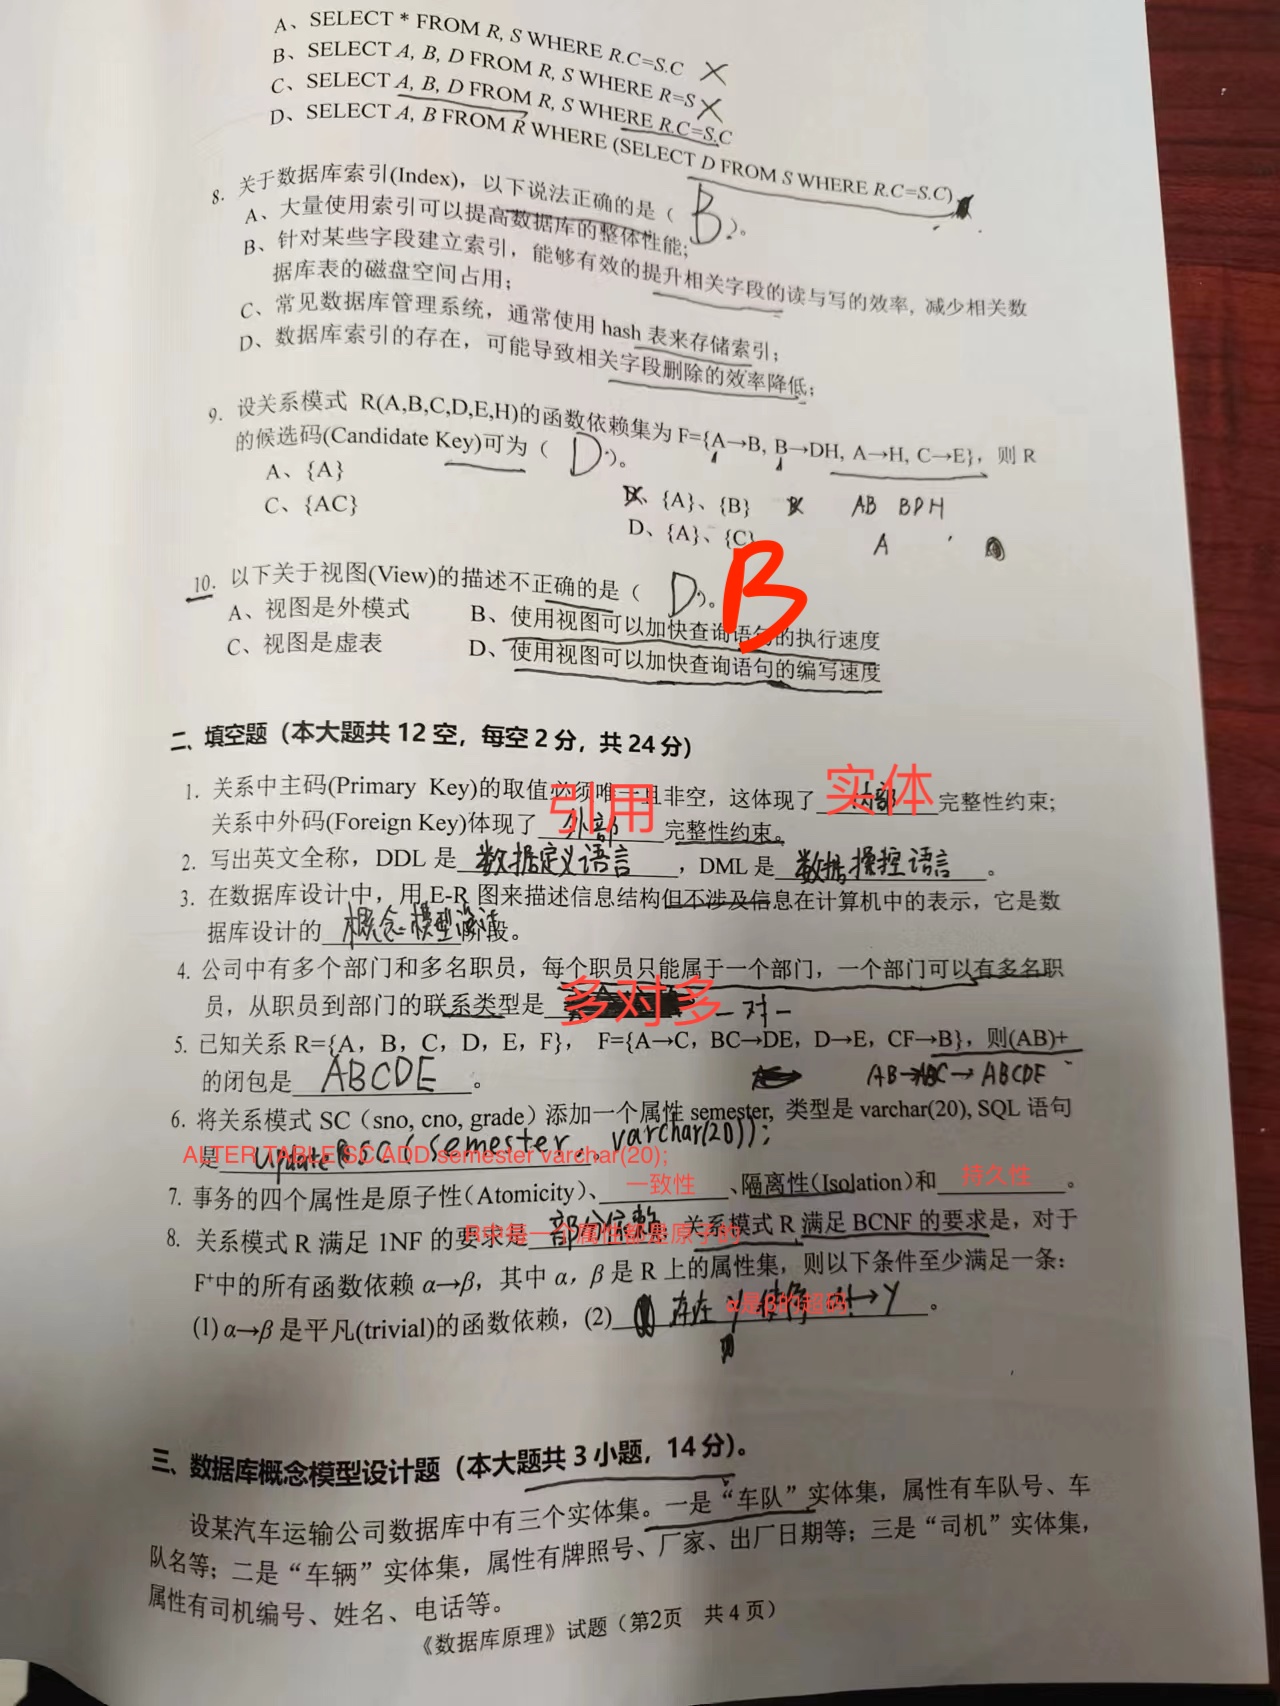 A、SELECT * FROM R, S WHERE R.C=S.C ×
B、SELECT A, B, D FROM R, S WHERE R=S ×
C、SELECT A, B, D FROM R, S WHERE R.C=S.C
D、SELECT A, B FROM R WHERE (SELECT D FROM S WHERE R.C=S.C)
8. 关于数据库索引(Index)，以下说法正确的是（ B ）。
A、大量使用索引可以提高数据库的整体性能；
B、针对某些字段建立索引，能够有效的提升相关字段的读与写的效率，减少相关数
据库表的磁盘空间占用；
C、常见数据库管理系统，通常使用 hash 表来存储索引；
D、数据库索引的存在，可能导致相关字段删除的效率降低；
9. 设关系模式 R(A,B,C,D,E,H)的函数依赖集为 F={A→B, B→DH, A→H, C→E}，则 R
的候选码(Candidate Key)可为（ D ）。
A、{A} B、{A}、{B} AB BDH
C、{AC} D、{A}、{C} A
10. 以下关于视图(View)的描述不正确的是（ D ）。 B
A、视图是外模式 B、使用视图可以加快查询语句的执行速度
C、视图是虚表 D、使用视图可以加快查询语句的编写速度
二、填空题（本大题共 12 空，每空 2 分，共 24 分）
1. 关系中主码(Primary Key)的取值必须唯一且非空，这体现了 内部 实体 完整性约束；
关系中外码(Foreign Key)体现了 外部 引用 完整性约束。
2. 写出英文全称，DDL 是 数据定义语言 ，DML 是 数据操控语言 。
3. 在数据库设计中，用 E-R 图来描述信息结构但不涉及信息在计算机中的表示，它是数
据库设计的 概念模型设计 阶段。
4. 公司中有多个部门和多名职员，每个职员只能属于一个部门，一个部门可以有多名职
员，从职员到部门的联系类型是 多对多 一对一
5. 已知关系 R={A，B，C，D，E，F}， F={A→C，BC→DE，D→E，CF→B}，则(AB)+
的闭包是 ABCDE 。 AB→ABC→ABCDE
6. 将关系模式 SC（sno, cno, grade）添加一个属性 semester, 类型是 varchar(20), SQL 语句
是 update SC(semester, varchar(20)); 。
ALTER TABLE SC ADD semester varchar(20);
7. 事务的四个属性是原子性(Atomicity)、 一致性 、隔离性(Isolation)和 持久性 。
8. 关系模式 R 满足 1NF 的要求是 R中每一个属性都是原子的 ，关系模式 R 满足 BCNF 的要求是，对于
F+中的所有函数依赖 α→β，其中 α，β 是 R 上的属性集，则以下条件至少满足一条：
(1) α→β 是平凡(trivial)的函数依赖，(2) 存在 Y →Y α是β的超码 。
三、数据库概念模型设计题（本大题共 3 小题，14 分）。
设某汽车运输公司数据库中有三个实体集。一是“车队”实体集，属性有车队号、车
队名等；二是“车辆”实体集，属性有牌照号、厂家、出厂日期等；三是“司机”实体集，
属性有司机编号、姓名、电话等。
《数据库原理》试题（第2页 共 4 页）